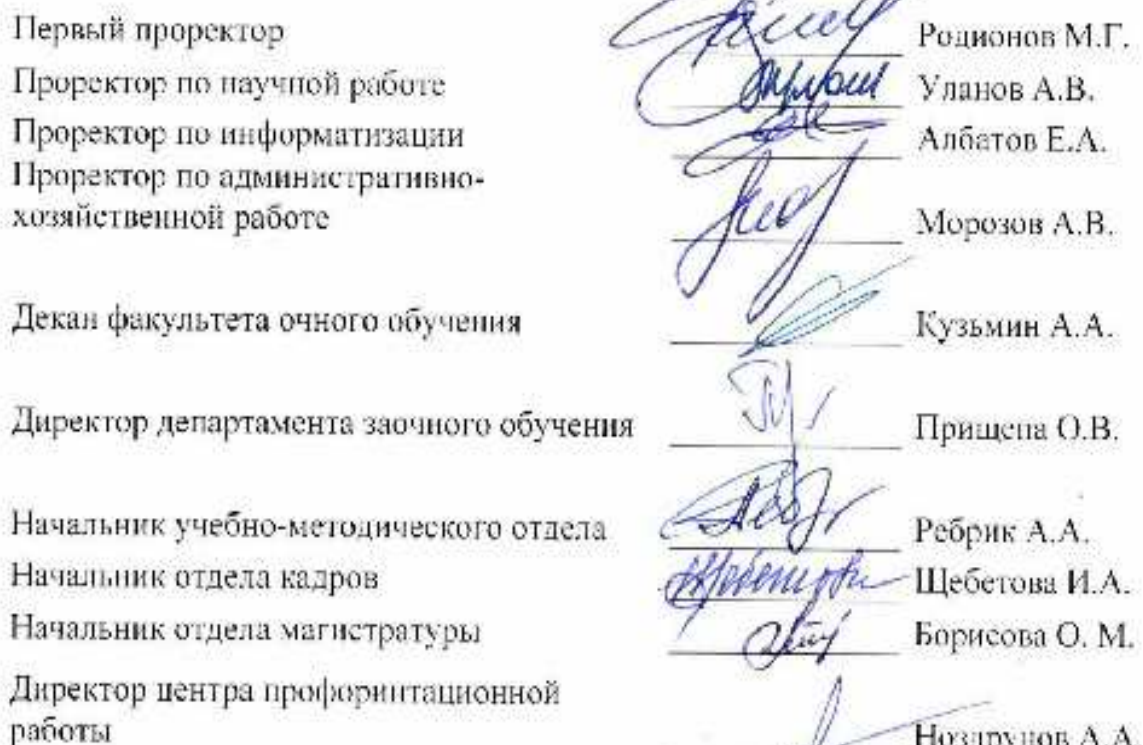 Первый проректор Родионов М.Г.
Проректор по научной работе Уланов А.В.
Проректор по информатизации Албатов Е.А.
Проректор по административно-
хозяйственной работе Морозов А.В.
Декан факультета очного обучения Кузьмин А.А.
Директор департамента заочного обучения Прищепа О.В.
Начальник учебно-методического отдела Ребрик А.А.
Начальник отдела кадров Щебетова И.А.
Начальник отдела магистратуры Борисова О. М.
Директор центра профоринтационной
работы Ноздрунов А.А.